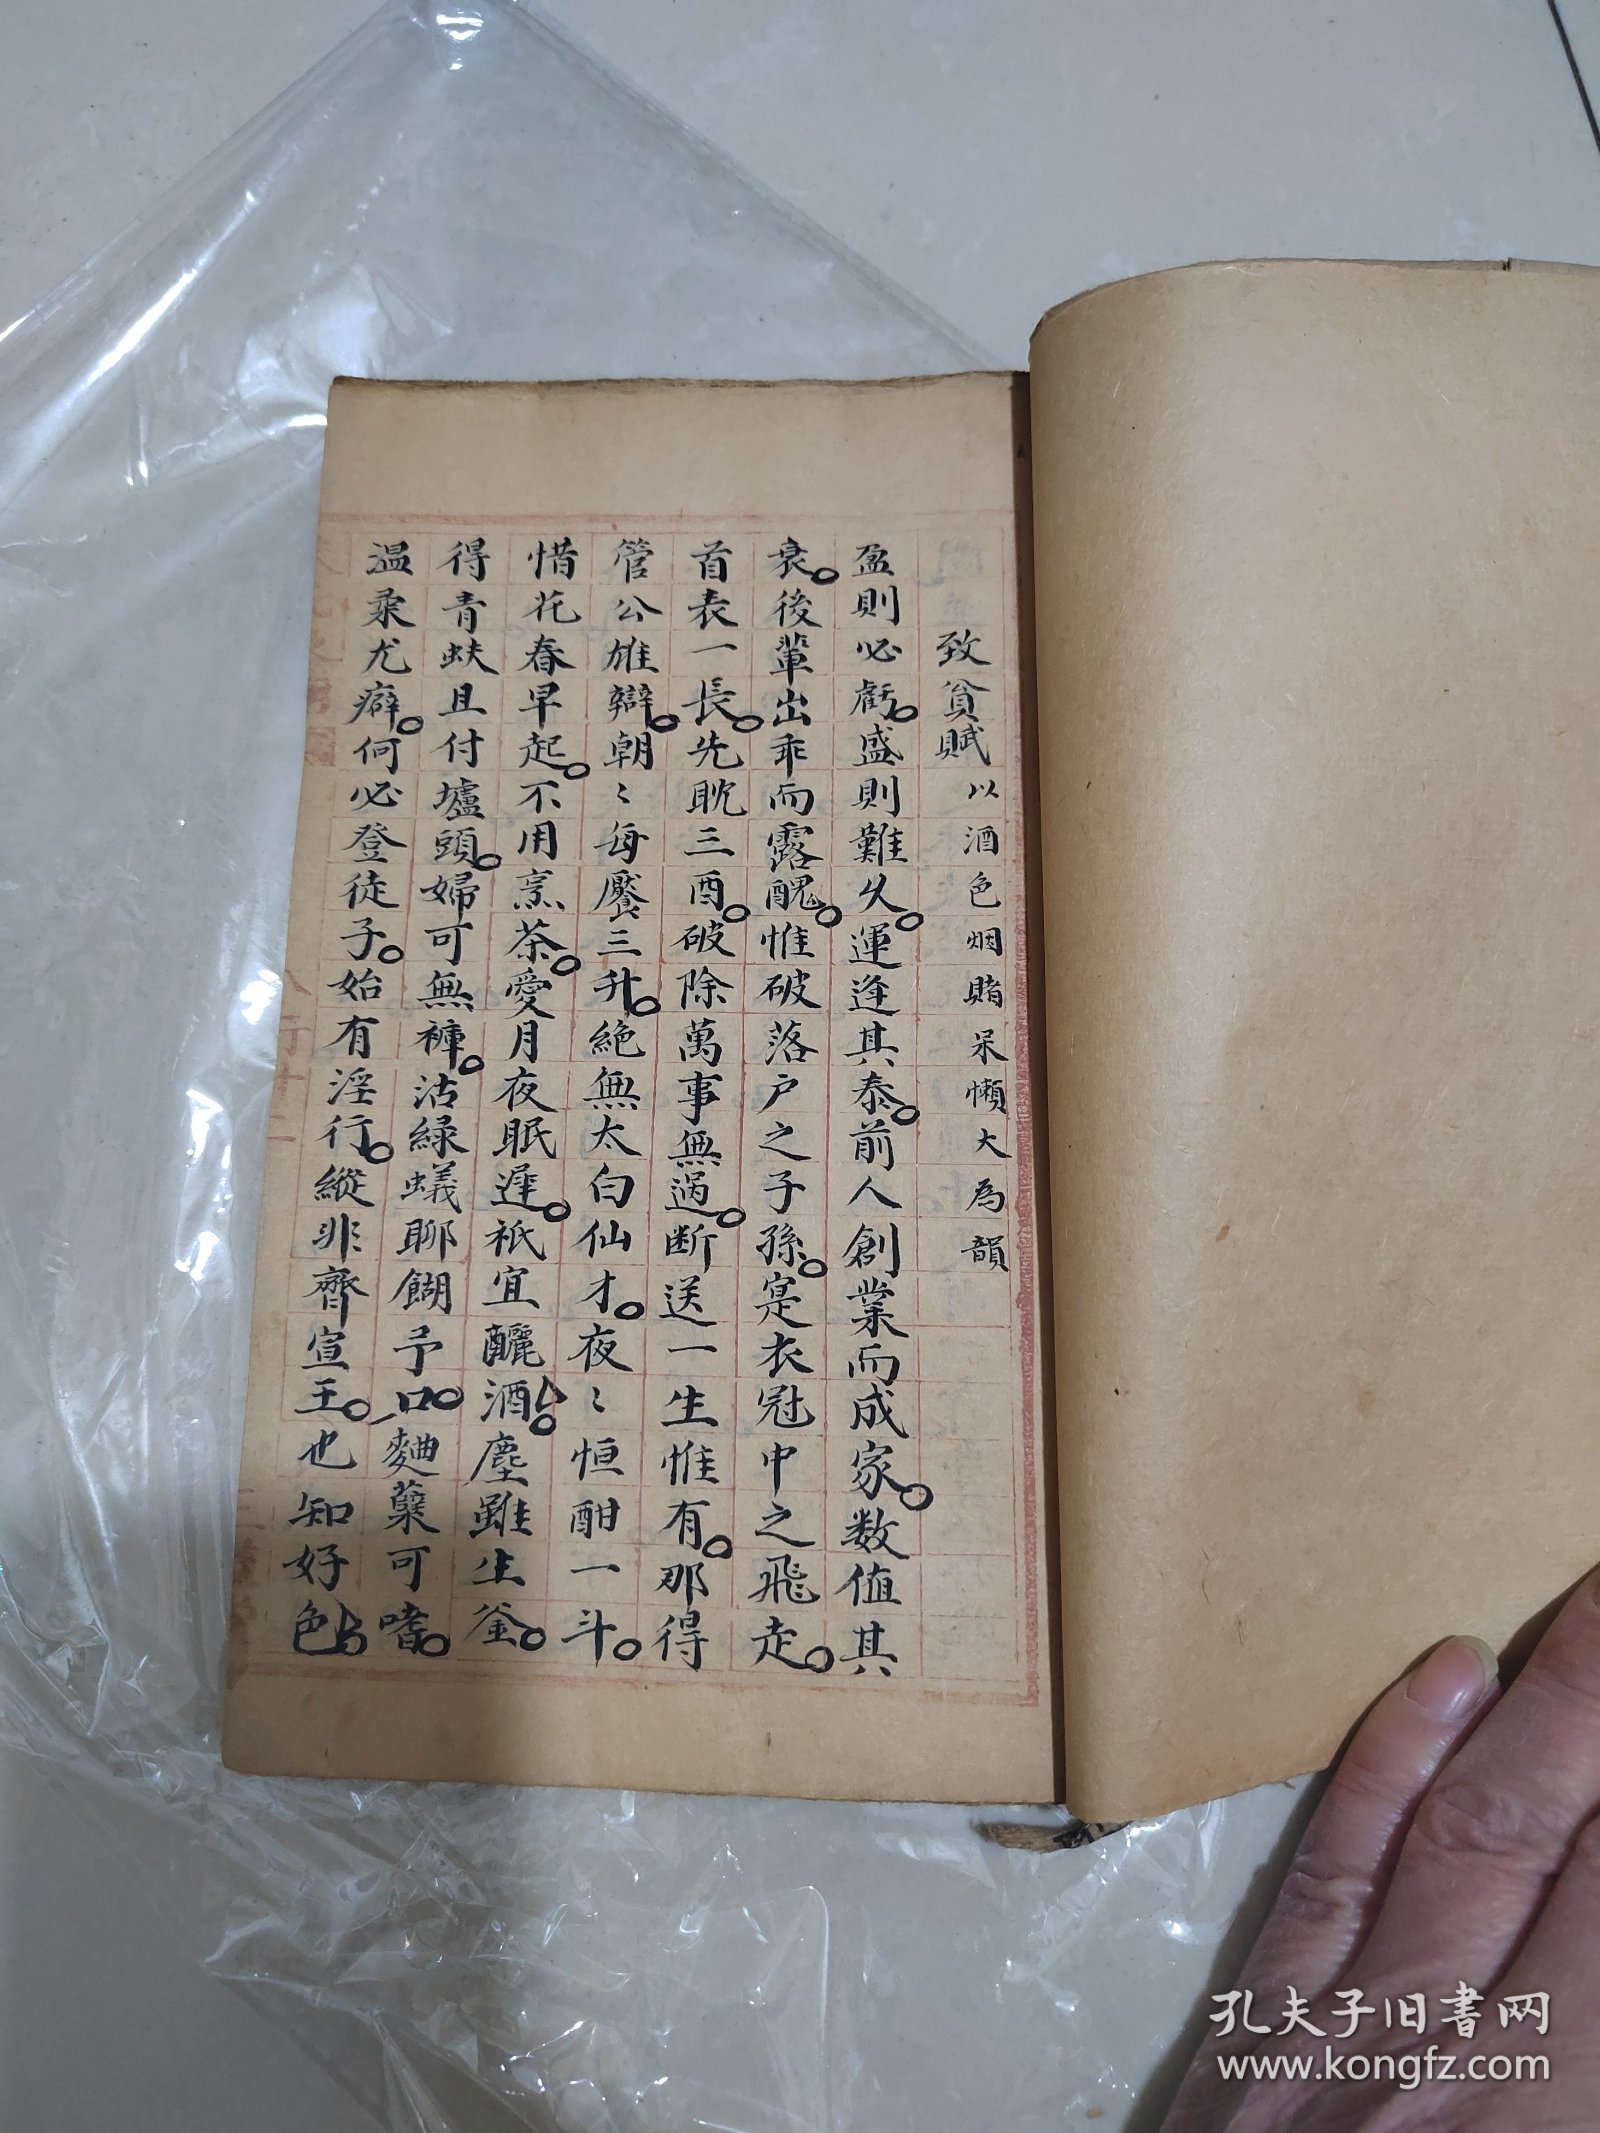 致貧賦 以酒色烟賭呆懶大為韻
盈則必虧。盛則難久。運逢其泰。前人創業而成家。数值其
衰。後輩出乖而露醜。惟破落户之子孫。寔衣冠中之飛走。
首表一長。先耽三酉。破除萬事無過。断送一生惟有。那得
管公雄辯。朝〻每饜三升。絶無太白仙才。夜〻恒酣一斗。
惜花春早起。不用烹茶。愛月夜眠遲。祇宜釃酒。塵雖生釜。
得青蚨且付壚頭。婦可無褲。沽緑蟻聊餬予口。麯糵可嗜。
温柔尤癖。何必登徒子。始有淫行。縱非齊宣王。也知好色。
孔夫子旧书网
www.kongfz.com